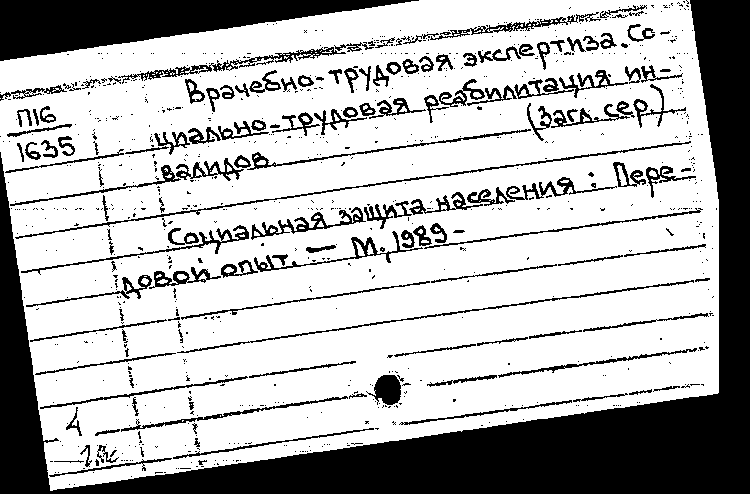 П16
1635
Врачебно-трудовая экспертиза. Со-
циально-трудовая реабилитация ин-
валидов.
(Загл. сер.)
Социальная защита населения : Пере-
довой опыт. — М., 1989-
4